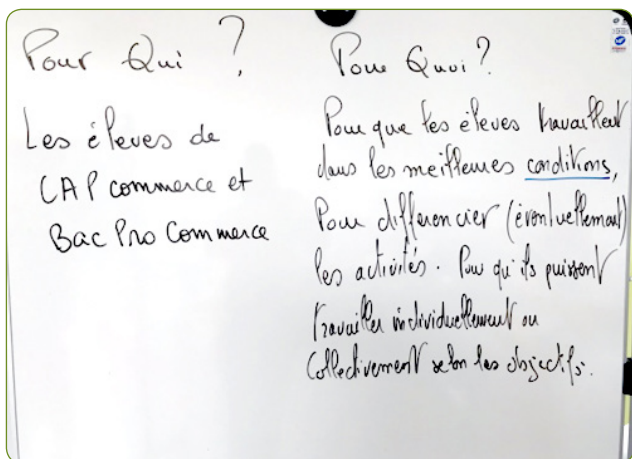 Pour Qui ?
Les élèves de
CAP commerce et
Bac Pro Commerce
Pour Quoi ?
Pour que les élèves travaillent
dans les meilleures conditions,
Pour différencier (éventuellement)
les activités. Pour qu'ils puissent
travailler individuellement ou
Collectivement selon les objectifs.